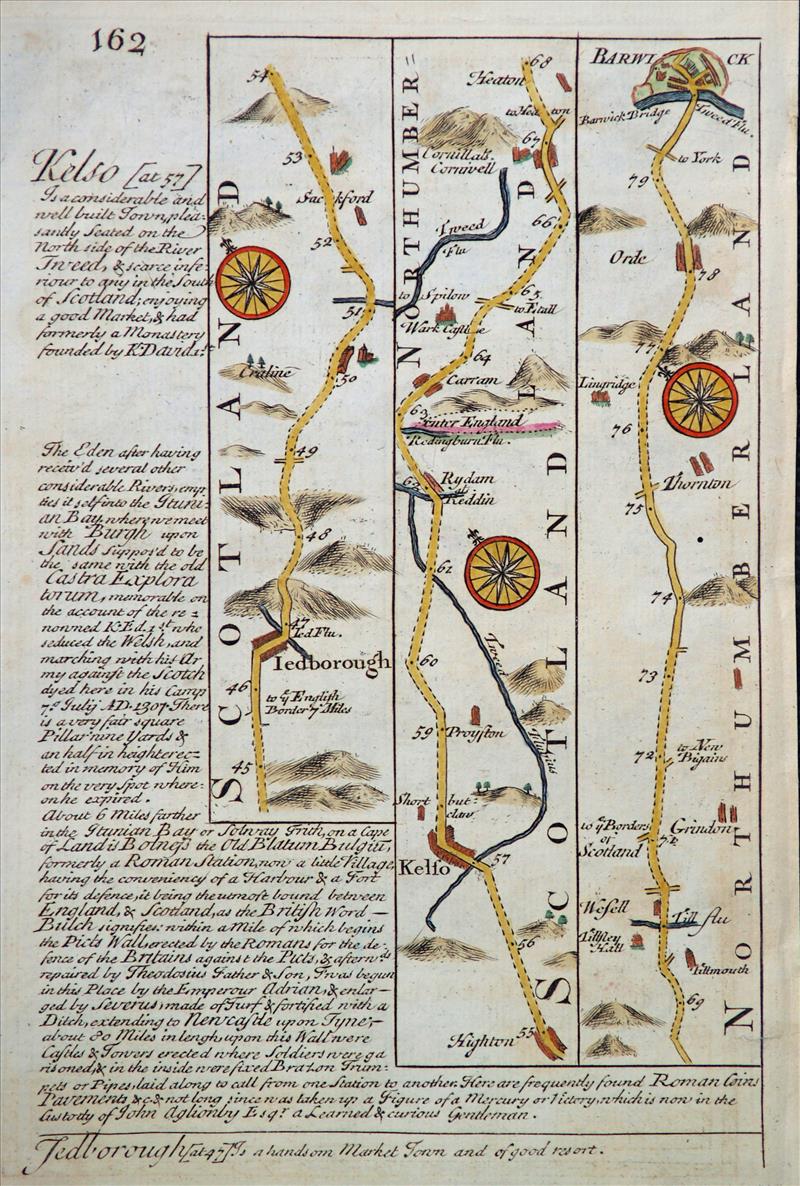 162
Kelso [at 57]
Is a considerable and
well built Town, plea-
santly Seated on the
North side of the River
Tweed, & scarce infe-
riour to any in the South
of Scotland; enjoying
a good Market, & had
formerly a Monastery
founded by K. David 1st
The Eden after having
receiv'd several other
considerable Rivers, emp
ties it self into the Ituni-
an Bay, where we meet
with Burgh upon
Sands suppos'd to be
the same with the old
Castra Explora
torum, memorable on
the account of the re=
nowned K. Ed. 1st. who
seduced the Welsh, and
marching with his Ar
my against the Scotch
dyed here in his Camp
7o July AD. 1307. There
is a very fair square
Pillar nine Yards &
an half in height erec=
ted in memory of Him
on the very Spot where-
on he expired.
About 6 Miles farther
in the Itunian Bay or Solway Frith, on a Cape
of Land is Bolness the Old Blatum Bulgiu,
formerly a Roman Station, now a little Village
having the conveniency of a Harbour & a Fort
for its defence, it being the utmost bound between
England, & Scotland, as the British Word —
Bulch signifies: within a Mile of which begins
the Picts Wall, erected by the Romans for the de-
fence of the Britains against the Picts, & afterwds
repaired by Theodosius Father & Son, Twas begun
in this Place by the Emperour Adrian, & enlar-
ged by Severus, made of Turf & fortified with a
Ditch, extending to Newcastle upon Tyne,-
about 80 Miles in lengh, upon this Wall were
Castles & Towers erected where Soldiers were ga
risoned, & in the inside were fixed Brazon Trum-
pets or Pipes, laid along to call from one Station to another. Here are frequently found Roman Coins
Pavements &c. & not long since was taken up a Figure of a Mercury or Victory, which is now in the
Custody of John Aglionby Esqr. a Learned & curious Gentleman.
Jedborough [at 47] Is a handsom Market Town and of good resort.
54
53
Jackford
52
51
50
Craline
49
48
47
Ied Flu.
Iedborough
46
to ye English
Border 7 Miles
45
SCOTLAND
68
Heaton
to Heaton
67
Cornillals
Cornwell
66
Tweed
Flu
65
to Spilow
to Etall
Wark Castle
64
Carram
63
Enter England
Redingburn Flu.
Rydam
Reddin
62
61
60
Tweed
fluvius
59
Proyston
Short but-
claw
Kelso
57
56
Highton
55
NORTHUMBER=
LAND
SCOTLAND
BARWICK
Barwick Bridge
Tweed Flu.
to York
79
Orde
78
77
Lingridge
76
Thornton
75
74
73
72
to New
Bigains
to ye Borders
of
Scotland
71
Grindon
Wesell
Till flu
Tillsley
Hall
Tillmouth
69
NORTHUMBERLAND